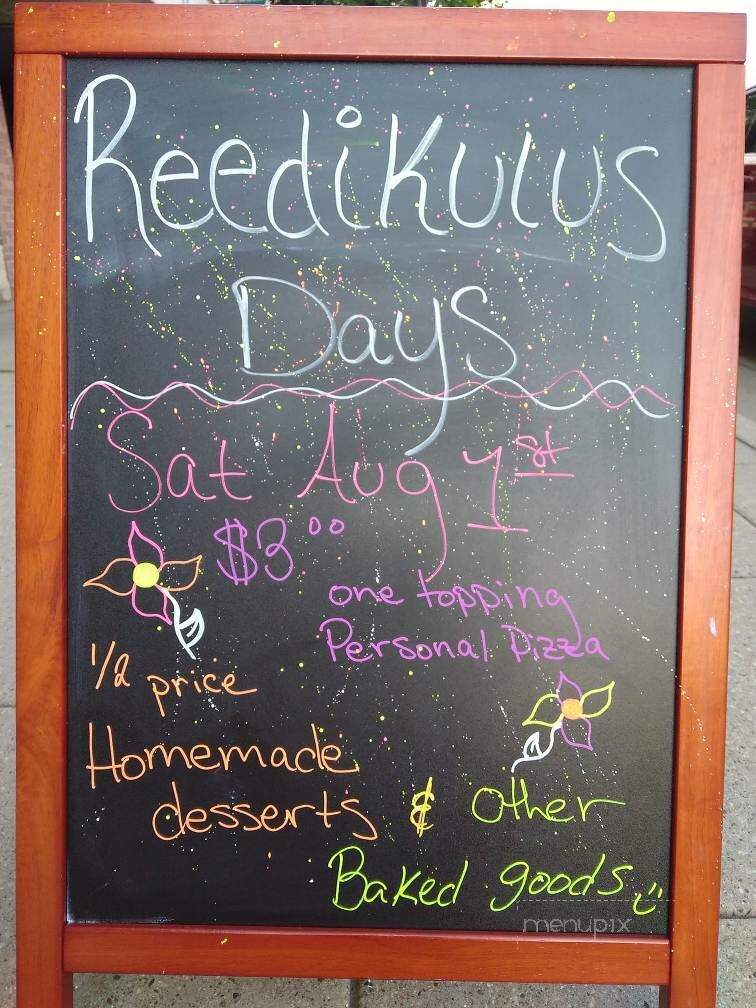 Reedikulus
Days
Sat Aug 1st
$3.00
one topping
Personal Pizza
1/2 price
Homemade
desserts & other
Baked goods
menupix